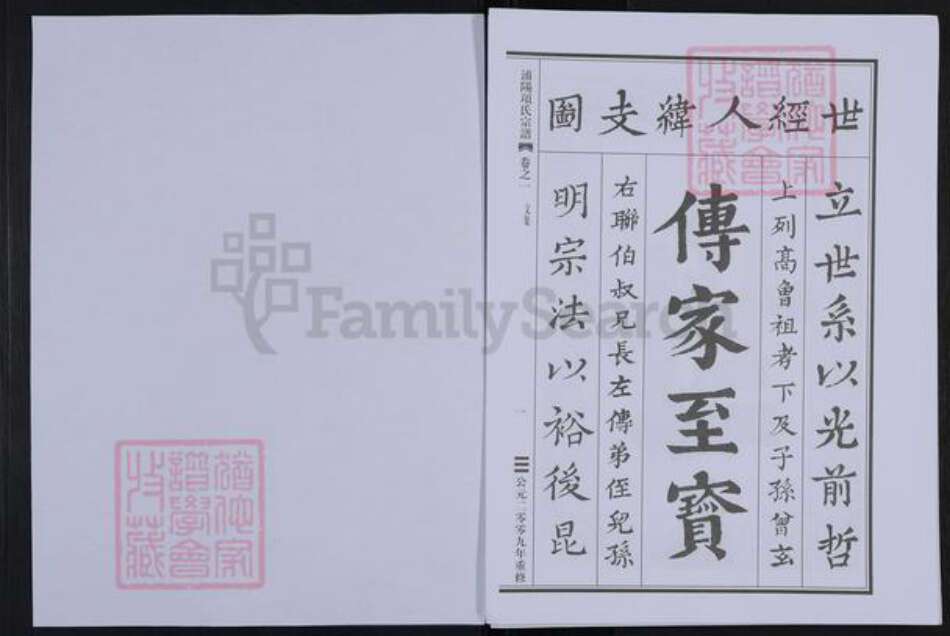 世經人緯支圖
立世系以光前哲
上列高曾祖考下及子孫曾玄
傳家至寶
右聯伯叔兄長左傳弟侄兒孫
明宗法以裕後昆
浦陽項氏宗譜
卷之一
一
公元二零零九年重修
FamilySearch
譜學會
收藏